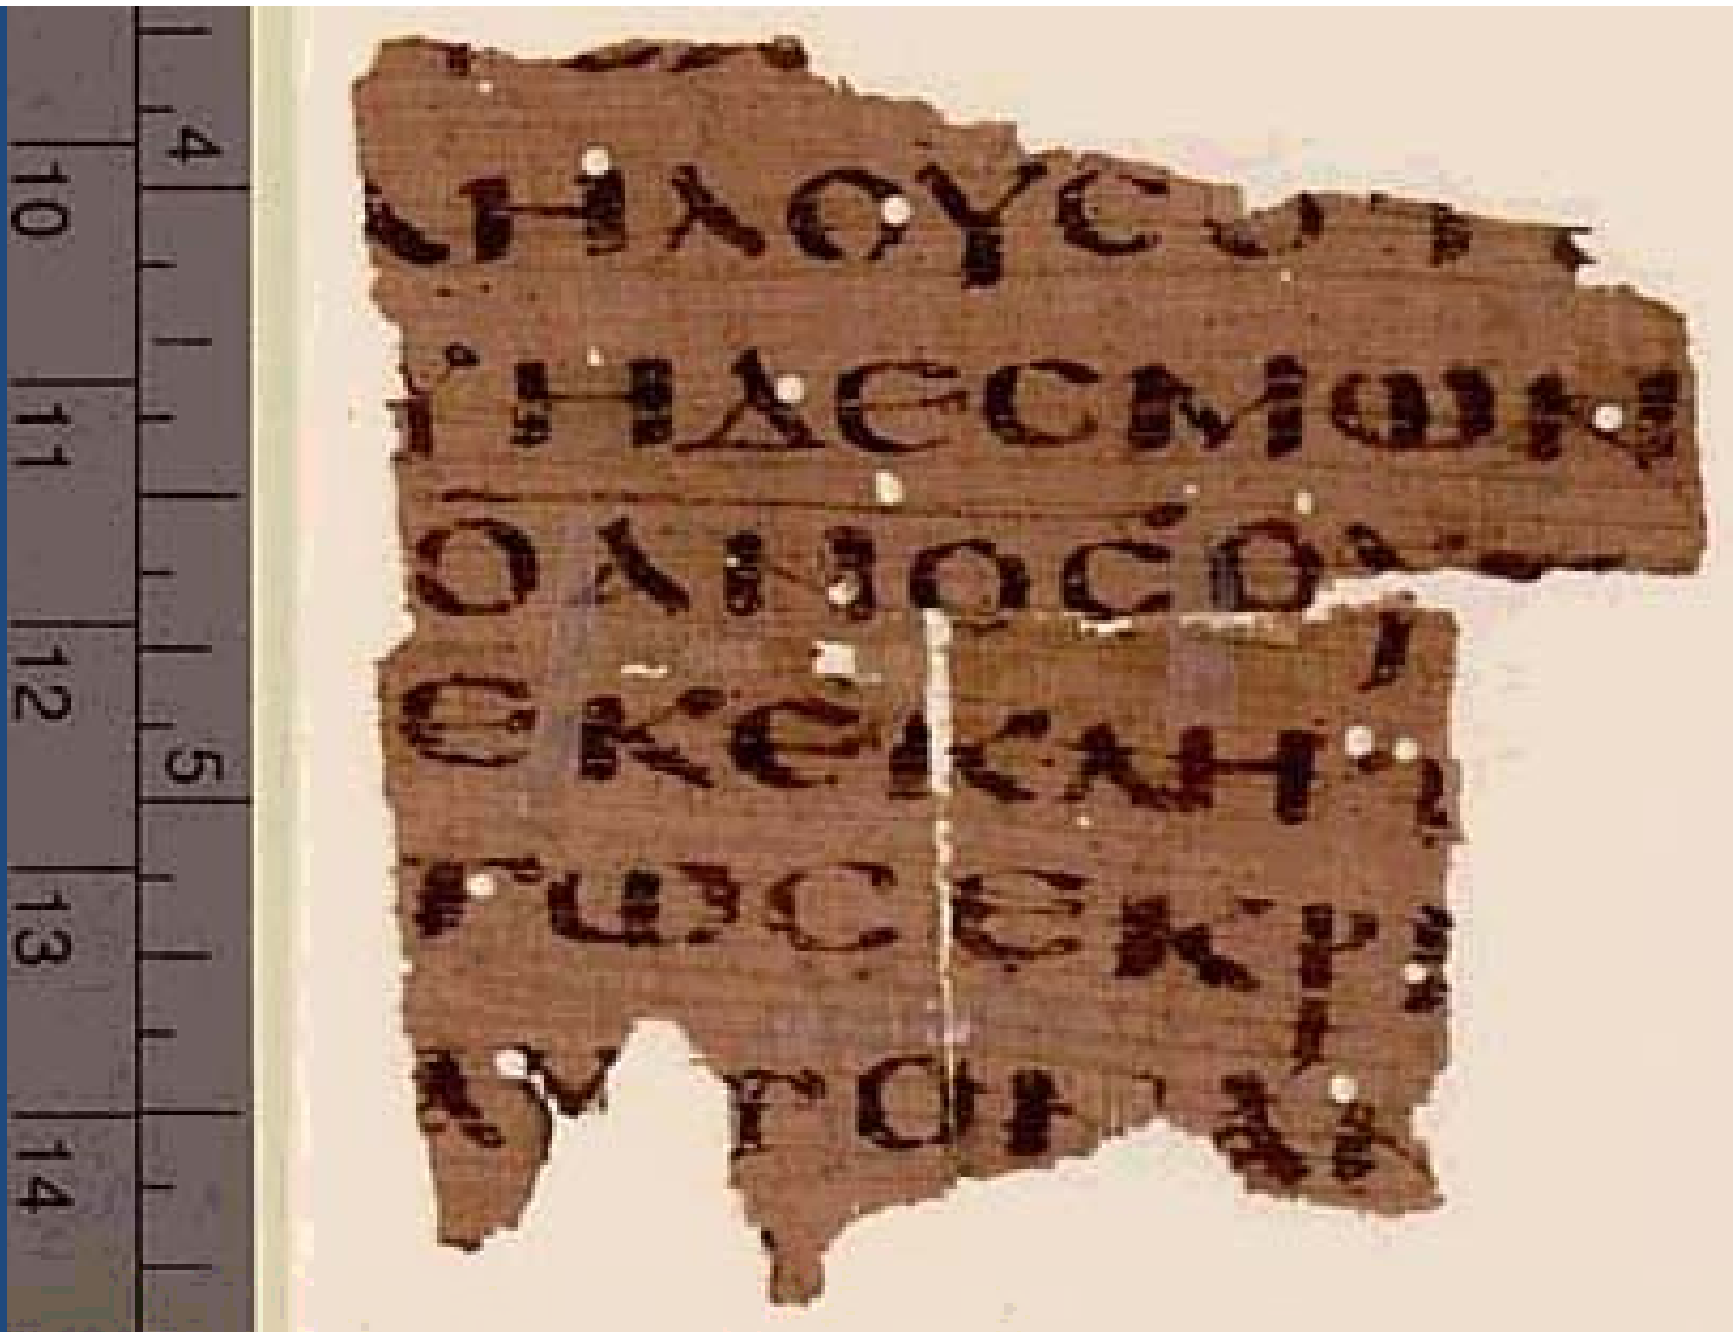 4
5
10
11
12
13
14
ΛΗΛΟΥϹΟΤΙ
ΥΗΔΕϹΜΩΝ
ΟΑΝΟϹΟΥ
ΕΚΕΚΛΗΤ
ΤΩϹΕΚΡΙΝ
ΑΥΤΟΝ